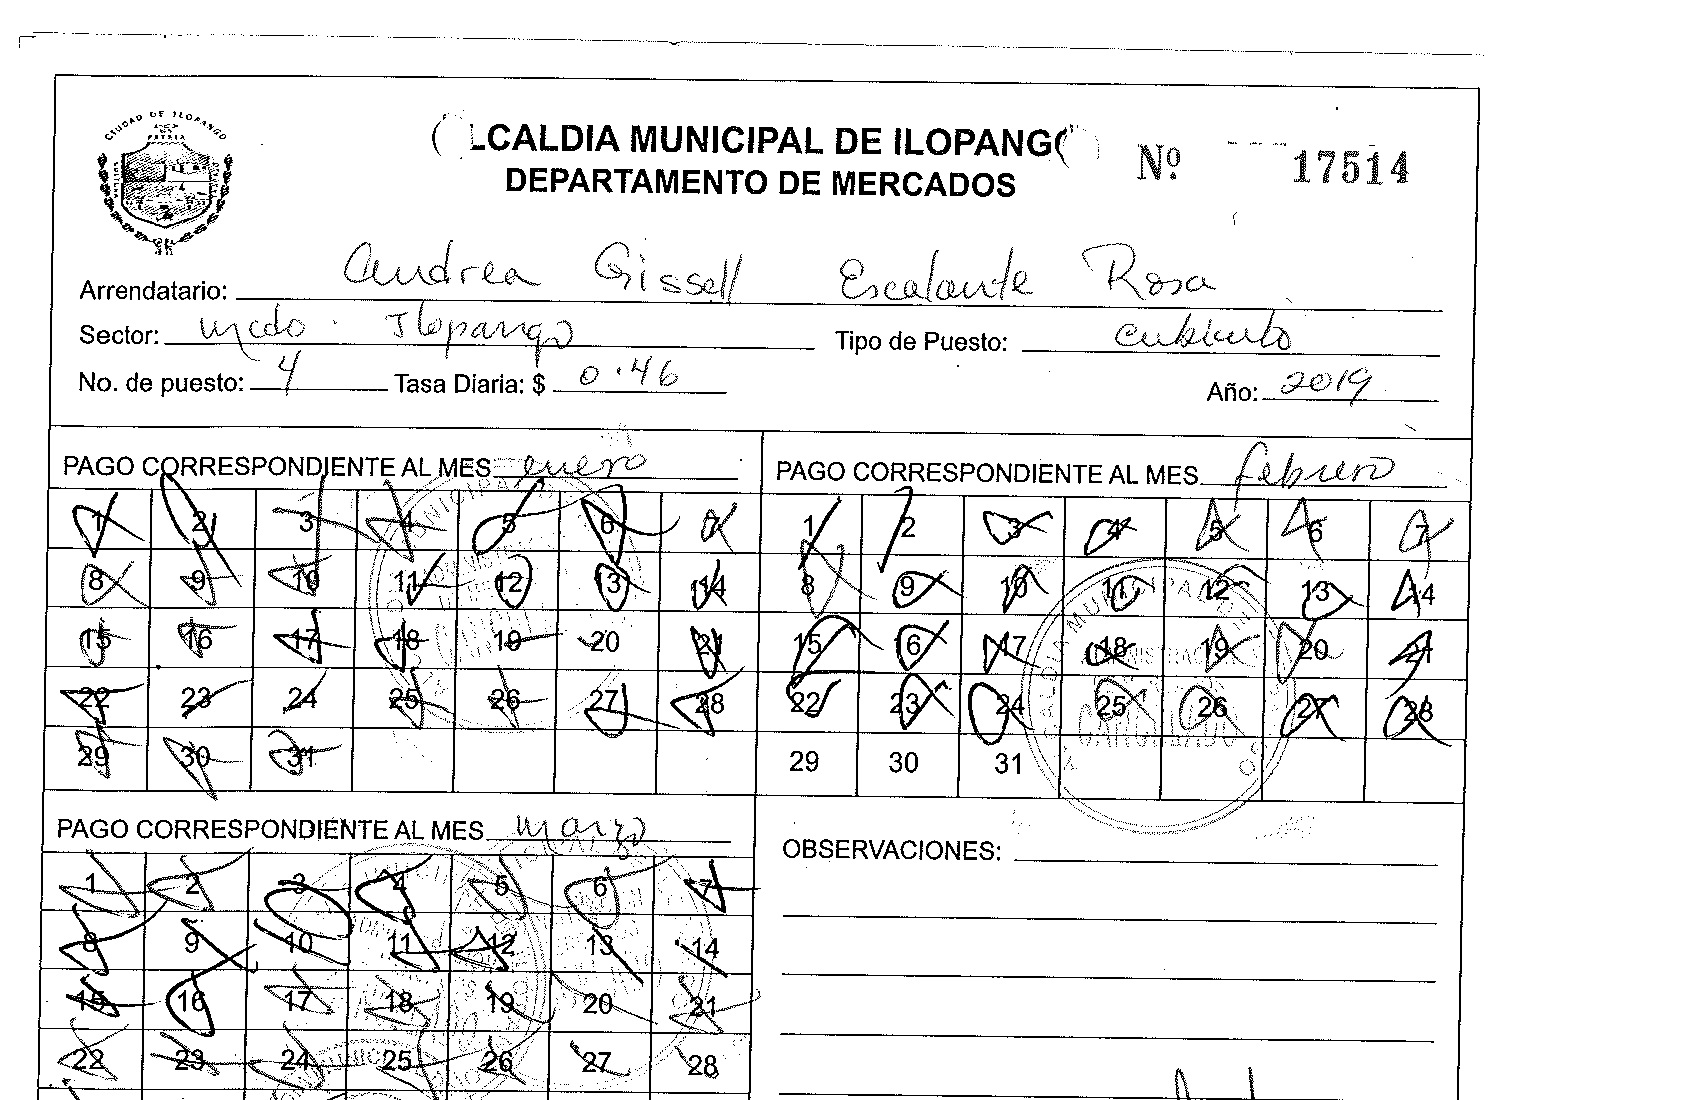 CIUDAD DE ILOPANGO
ALCALDIA MUNICIPAL DE ILOPANGO
DEPARTAMENTO DE MERCADOS
Nº 17514
Arrendatario: Andrea Gissell Escalante Rosa
Sector: Mcdo. Ilopango Tipo de Puesto: cubierto
No. de puesto: 4 Tasa Diaria: $ 0.46 Año: 2019
PAGO CORRESPONDIENTE AL MES enero
1 2 3 4 5 6 7
8 9 10 11 12 13 14
15 16 17 18 19 20 21
22 23 24 25 26 27 28
29 30 31
PAGO CORRESPONDIENTE AL MES febrero
1 2 3 4 5 6 7
8 9 10 11 12 13 14
15 16 17 18 19 20 21
22 23 24 25 26 27 28
29 30 31
CANCELADO
PAGO CORRESPONDIENTE AL MES marzo
1 2 3 4 5 6 7
8 9 10 11 12 13 14
15 16 17 18 19 20 21
22 23 24 25 26 27 28
OBSERVACIONES: